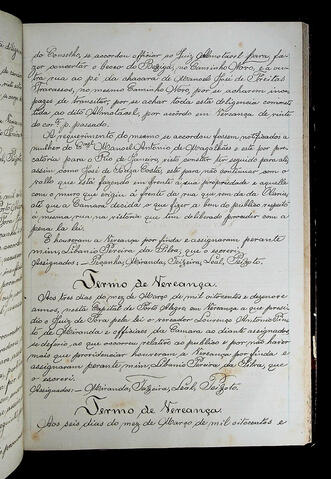 do Conselho, se accordou officiar ao Juiz Almotacel para fa-
zer concertar o becco do no Caminho Novo, e a ou-
tra rua ao pé da chacara de Manoel José de Freitas
Travassos, no mesmo Caminho Novo, por se acharem inca-
pazes de transitar, por se achar toda esta deligencia commet-
tida ao dito Almotacel, que se accordou em Vereança de vinte
do corr.te p. passado.
A requerimento do mesmo se accordou fossem notificados a
mulher do Cap.m Manoel Antonio de Magalhães e este por pre-
catoria para o Rio de Janeiro, visto constar ter seguido para ali,
assim como José de Costa, este para não continuar com o
vallo que está fazendo em frente á sua propriedade e aquelle
com o muro que na frente da rua que vem da da
até que a Camara decida o que fizer a bem do publico respeito
á mesma rua na vistoria que tem deliberado proceder com a
pena da lei.
E houveram a Vereança por finda e assignaram perante
mim, Libanio Pereira da Silva, que o escrevi.
Assignados: — Miranda, Teixeira, Leal, Peixoto.
Termo de Vereança.
Aos tres dias do mez de Março de mil oitocentos e dezenove
annos, nesta Capital de Porto Alegre em Vereança a que presi-
diu o Juiz de Fóra pela lei o vereador Lourenço Antonio
de Miranda e officiaes da Camara ao diante assignados
se deferio, ao que occorreu relativo ao publico e por não haver
mais que providenciar houveram a Vereança por finda e
assignaram perante mim, Libanio Pereira da Silva, que
o escrevi.
Assignados, — Miranda, Teixeira, Leal, Peixoto.
Termo de Vereança
Aos seis dias do mez de Março de mil oitocentos e